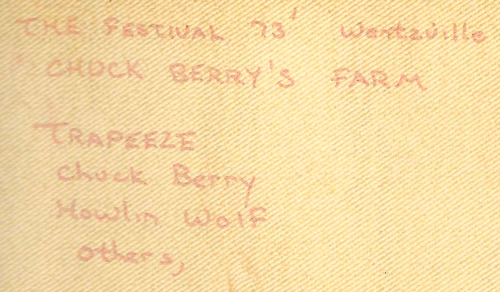 THE FESTIVAL 73' Wentzville
CHUCK BERRY'S FARM
TRAPEEZE
Chuck Berry
Howlin Wolf
others,